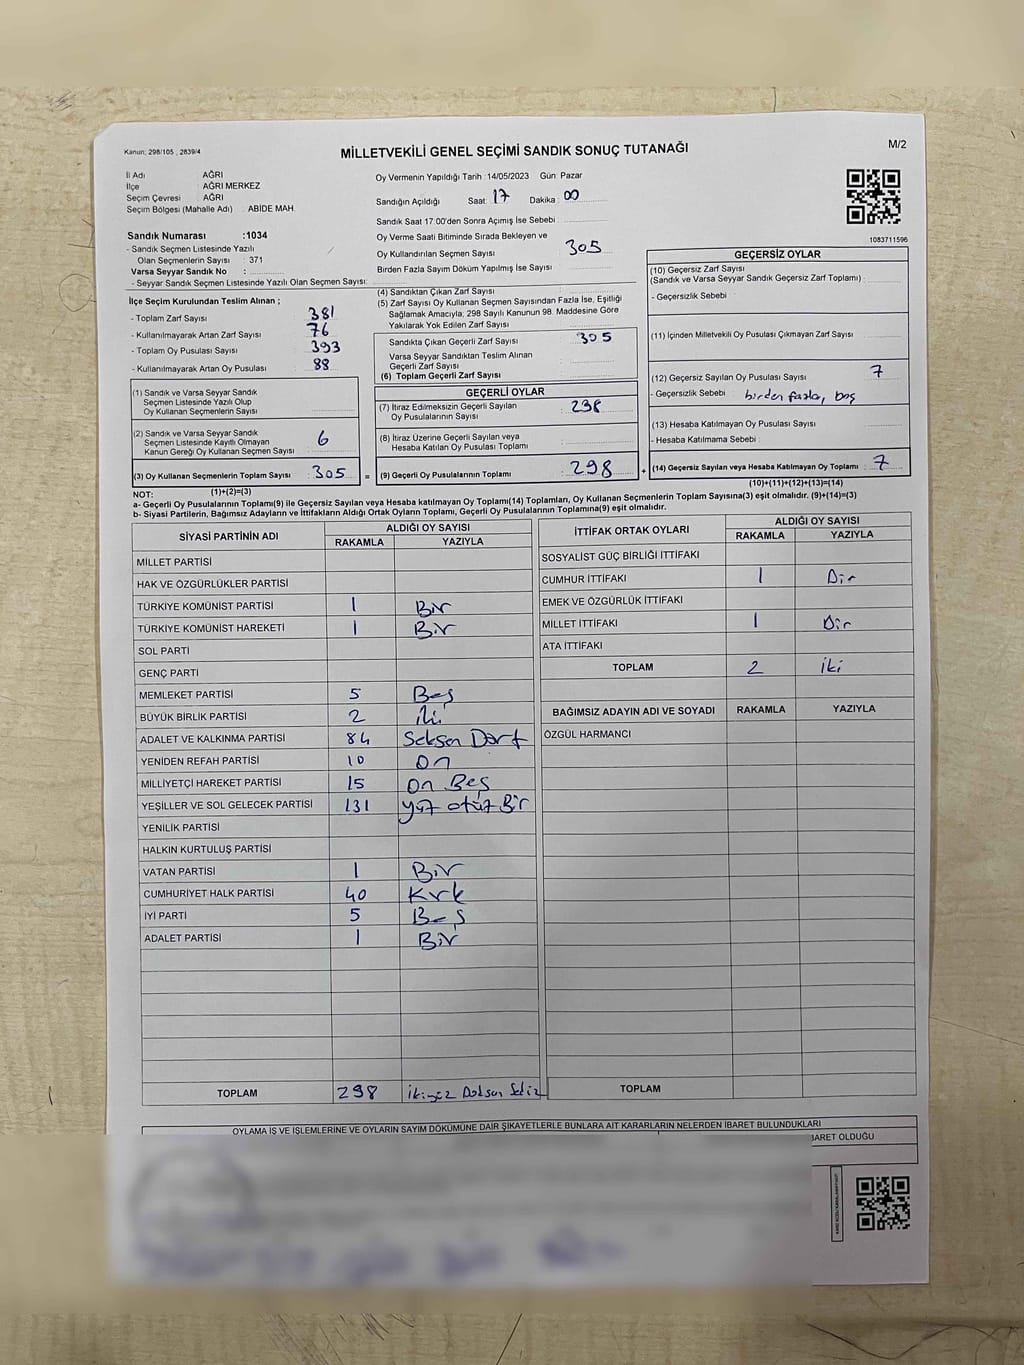 Kanun: 298/105 , 2839/4
MİLLETVEKİLİ GENEL SEÇİMİ SANDIK SONUÇ TUTANAĞI
M/2
İl Adı AĞRI
İlçe AĞRI MERKEZ
Seçim Çevresi : AĞRI
Seçim Bölgesi (Mahalle Adı) : ABİDE MAH.
Oy Vermenin Yapıldığı Tarih :14/05/2023 Gün: Pazar
Sandığın Açıldığı Saat: 17 Dakika : 00
Sandık Saat 17:00'den Sonra Açımış İse Sebebi :
Oy Verme Saati Bitiminde Sırada Bekleyen ve
Oy Kullandırılan Seçmen Sayısı 305
Birden Fazla Sayım Döküm Yapılmış İse Sayısı
1083711596
Sandık Numarası :1034
- Sandık Seçmen Listesinde Yazılı
Olan Seçmenlerin Sayısı : 371
Varsa Seyyar Sandık No :
- Seyyar Sandık Seçmen Listesinde Yazılı Olan Seçmen Sayısı:
İlçe Seçim Kurulundan Teslim Alınan ;
- Toplam Zarf Sayısı 381
- Kullanılmayarak Artan Zarf Sayısı 76
- Toplam Oy Pusulası Sayısı 393
- Kullanılmayarak Artan Oy Pusulası 88
(1) Sandık ve Varsa Seyyar Sandık
Seçmen Listesinde Yazılı Olup
Oy Kullanan Seçmenlerin Sayısı
(2) Sandık ve Varsa Seyyar Sandık
Seçmen Listesinde Kayıtlı Olmayan
Kanun Gereği Oy Kullanan Seçmen Sayısı 6
(3) Oy Kullanan Seçmenlerin Toplam Sayısı 305 =
(1)+(2)=(3)
(4) Sandıktan Çıkan Zarf Sayısı
(5) Zarf Sayısı Oy Kullanan Seçmen Sayısından Fazla İse, Eşitliği
Sağlamak Amacıyla, 298 Sayılı Kanunun 98. Maddesine Göre
Yakılarak Yok Edilen Zarf Sayısı
Sandıkta Çıkan Geçerli Zarf Sayısı 305
Varsa Seyyar Sandıktan Teslim Alınan
Geçerli Zarf Sayısı
(6) Toplam Geçerli Zarf Sayısı
GEÇERLİ OYLAR
(7) İtiraz Edilmeksizin Geçerli Sayılan
Oy Pusulalarının Sayısı 298
(8) İtiraz Üzerine Geçerli Sayılan veya
Hesaba Katılan Oy Pusulası Toplamı
(9) Geçerli Oy Pusulalarının Toplamı 298 +
GEÇERSİZ OYLAR
(10) Geçersiz Zarf Sayısı
(Sandık ve Varsa Seyyar Sandık Geçersiz Zarf Toplamı) :
- Geçersizlik Sebebi
(11) İçinden Milletvekili Oy Pusulası Çıkmayan Zarf Sayısı
(12) Geçersiz Sayılan Oy Pusulası Sayısı 7
- Geçersizlik Sebebi : birden fazla, boş
(13) Hesaba Katılmayan Oy Pusulası Sayısı
- Hesaba Katılmama Sebebi :
(14) Geçersiz Sayılan veya Hesaba Katılmayan Oy Toplamı : 7
(10)+(11)+(12)+(13)=(14)
NOT:
a- Geçerli Oy Pusulalarının Toplamı(9) ile Geçersiz Sayılan veya Hesaba katılmayan Oy Toplamı(14) Toplamları, Oy Kullanan Seçmenlerin Toplam Sayısına(3) eşit olmalıdır. (9)+(14)=(3)
b- Siyasi Partilerin, Bağımsız Adayların ve İttifakların Aldığı Ortak Oyların Toplamı, Geçerli Oy Pusulalarının Toplamına(9) eşit olmalıdır.
SİYASİ PARTİNİN ADI ALDIĞI OY SAYISI
RAKAMLA YAZIYLA
MİLLET PARTİSİ
HAK VE ÖZGÜRLÜKLER PARTİSİ
TÜRKİYE KOMÜNİST PARTİSİ 1 Bir
TÜRKİYE KOMÜNİST HAREKETİ 1 Bir
SOL PARTİ
GENÇ PARTİ
MEMLEKET PARTİSİ 5 Beş
BÜYÜK BİRLİK PARTİSİ 2 iki
ADALET VE KALKINMA PARTİSİ 84 Seksen Dört
YENİDEN REFAH PARTİSİ 10 On
MİLLİYETÇİ HAREKET PARTİSİ 15 On Beş
YEŞİLLER VE SOL GELECEK PARTİSİ 131 yüz otuz Bir
YENİLİK PARTİSİ
HALKIN KURTULUŞ PARTİSİ
VATAN PARTİSİ 1 Bir
CUMHURİYET HALK PARTİSİ 40 Kırk
İYİ PARTİ 5 Beş
ADALET PARTİSİ 1 Bir
TOPLAM 298 ikiyüz Doksan Sekiz
İTTİFAK ORTAK OYLARI ALDIĞI OY SAYISI
RAKAMLA YAZIYLA
SOSYALİST GÜÇ BİRLİĞİ İTTİFAKI
CUMHUR İTTİFAKI 1 Bir
EMEK VE ÖZGÜRLÜK İTTİFAKI
MİLLET İTTİFAKI 1 Bir
ATA İTTİFAKI
TOPLAM 2 iki
BAĞIMSIZ ADAYIN ADI VE SOYADI RAKAMLA YAZIYLA
ÖZGÜL HARMANCI
TOPLAM
OYLAMA İŞ VE İŞLEMLERİNE VE OYLARIN SAYIM DÖKÜMÜNE DAİR ŞİKAYETLERLE BUNLARA AİT KARARLARIN NELERDEN İBARET BULUNDUKLARI
İBARET OLDUĞU